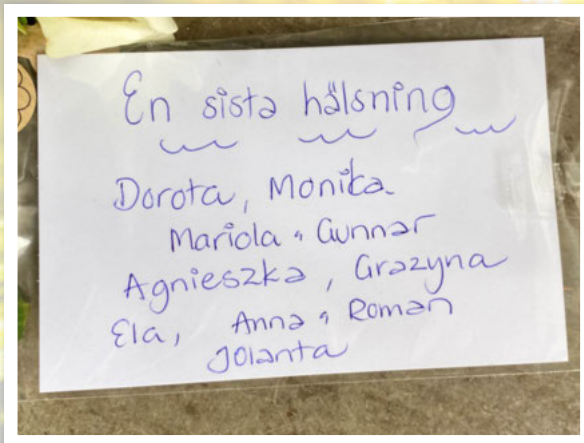 En sista hälsning
Dorota, Monika
Mariola, Gunnar
Agnieszka, Grazyna
Ela, Anna, Roman
Jolanta